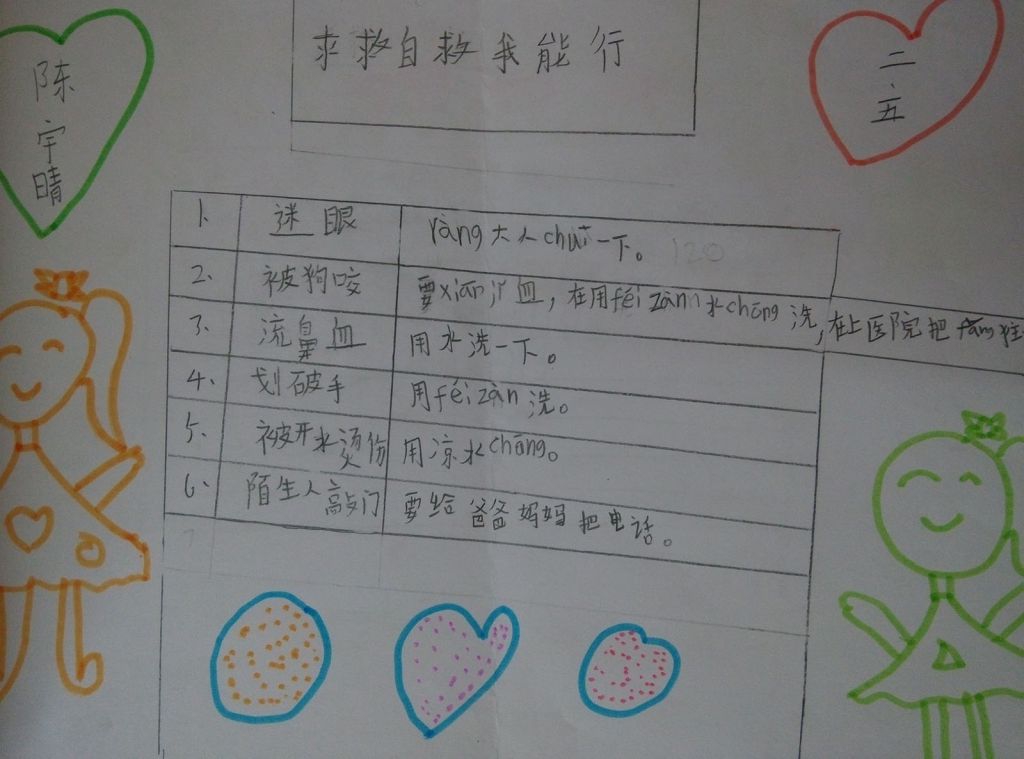 求救自救我能行
陈宇晴
二、五
1、 迷眼 ràng大人chuī一下。 120
2、 被狗咬 要xiān jǐ血，在用féi zànn水chōng洗，在上医院把
3、 流鼻血 用水洗一下。
4、 划破手 用féi zàn洗。
5、 被开水烫伤 用凉水chōng。
6、 陌生人敲门 要给爸爸妈妈把电话。
7